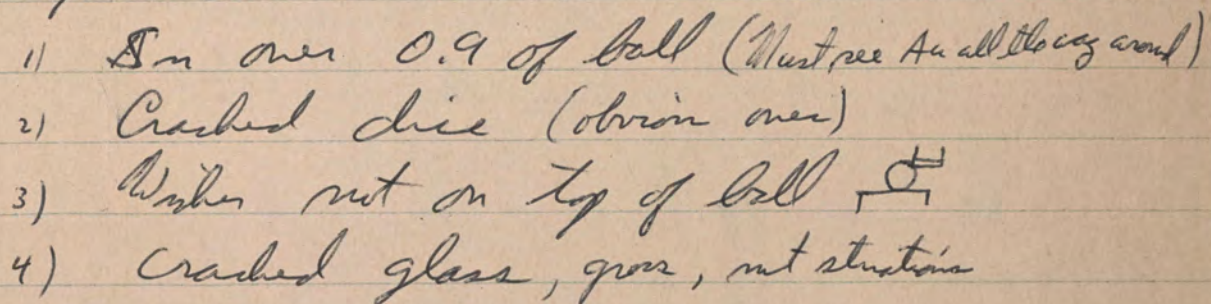 1) Sn over 0.9 of ball (Must see Au all the way around)
2) Cracked dice (obvious ones)
3) not on top of ball
4) Cracked glass, gross, not striations